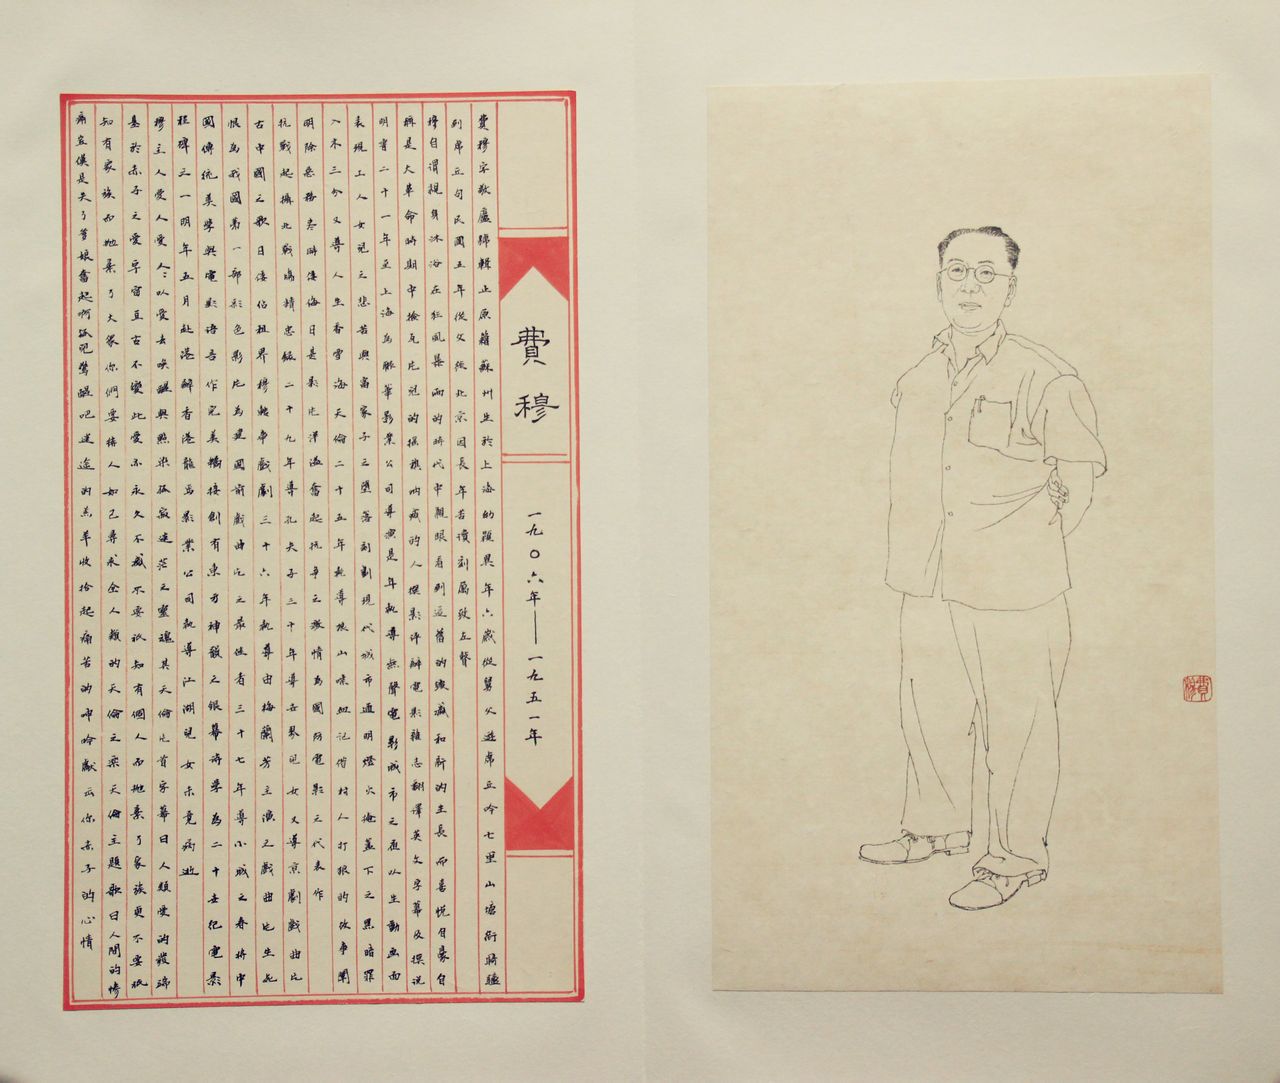 費穆
一九〇六年——一九五一年
費穆字敬廬號輯止原籍蘇州生於上海的穎異年六歲從舅父遊席立吟七里山塘衖騎驢
列席立句民國五年從父徙北京因長年苦讀刻厲致左瞽
穆自謂視身沐浴在狂風暴雨的時代中親眼看到這舊的殘滅和新的生長而喜悅自豪自
稱是大革命時期中撿瓦片兒的搖旗吶喊的人撰影評辦電影雜志翻譯英文字幕及撰說
明書二十一年至上海為聯華影業公司導演是年執導無聲電影城市之夜以生動画面
表現工人女兒之悲苦與富家子之墮落刻劃現代城市通明燈火掩蓋下之黑暗罪
入木三分又導人生香雪海天倫二十五年執導狼山喋血記借村人打狼的故事闡
明除惡務盡時倭侮日甚影片洋溢奮起抗爭之激情為國防電影之代表作
抗戰起攝北戰場精忠錄二十九年導孔夫子三十年導世界兒女又導京劇戲曲片
古中國之歌日倭佔租界穆轉事戲劇三十六年執導由梅蘭芳主演之戲曲片生死
恨為我國第一部彩色影片為建國前戲曲片之最佳者三十七年導小城之春將中
國傳統美學與電影語言作完美轉接創有東方神韻之銀幕詩學為二十世紀電影
程碑之一明年五月赴港辦香港龍馬影業公司執導江湖兒女未竟病逝
穆主人愛人愛人々以愛去喚醒與照孤寂迷茫之靈魂其天倫片首字幕曰人類愛的發端
基於赤子之愛宙亘古不變此愛亦永久不滅不要祇知有個人而拋棄了家族更不要祇
知有家族而拋棄了大眾你們要將人如己尋求全人類的天倫之樂天倫主題歌曰人間的慘
痛豈僅是失了爹娘奮起啊孤兒驚醒吧迷途的羔羊收拾起痛苦的呻吟獻出你赤子的心情
費穆